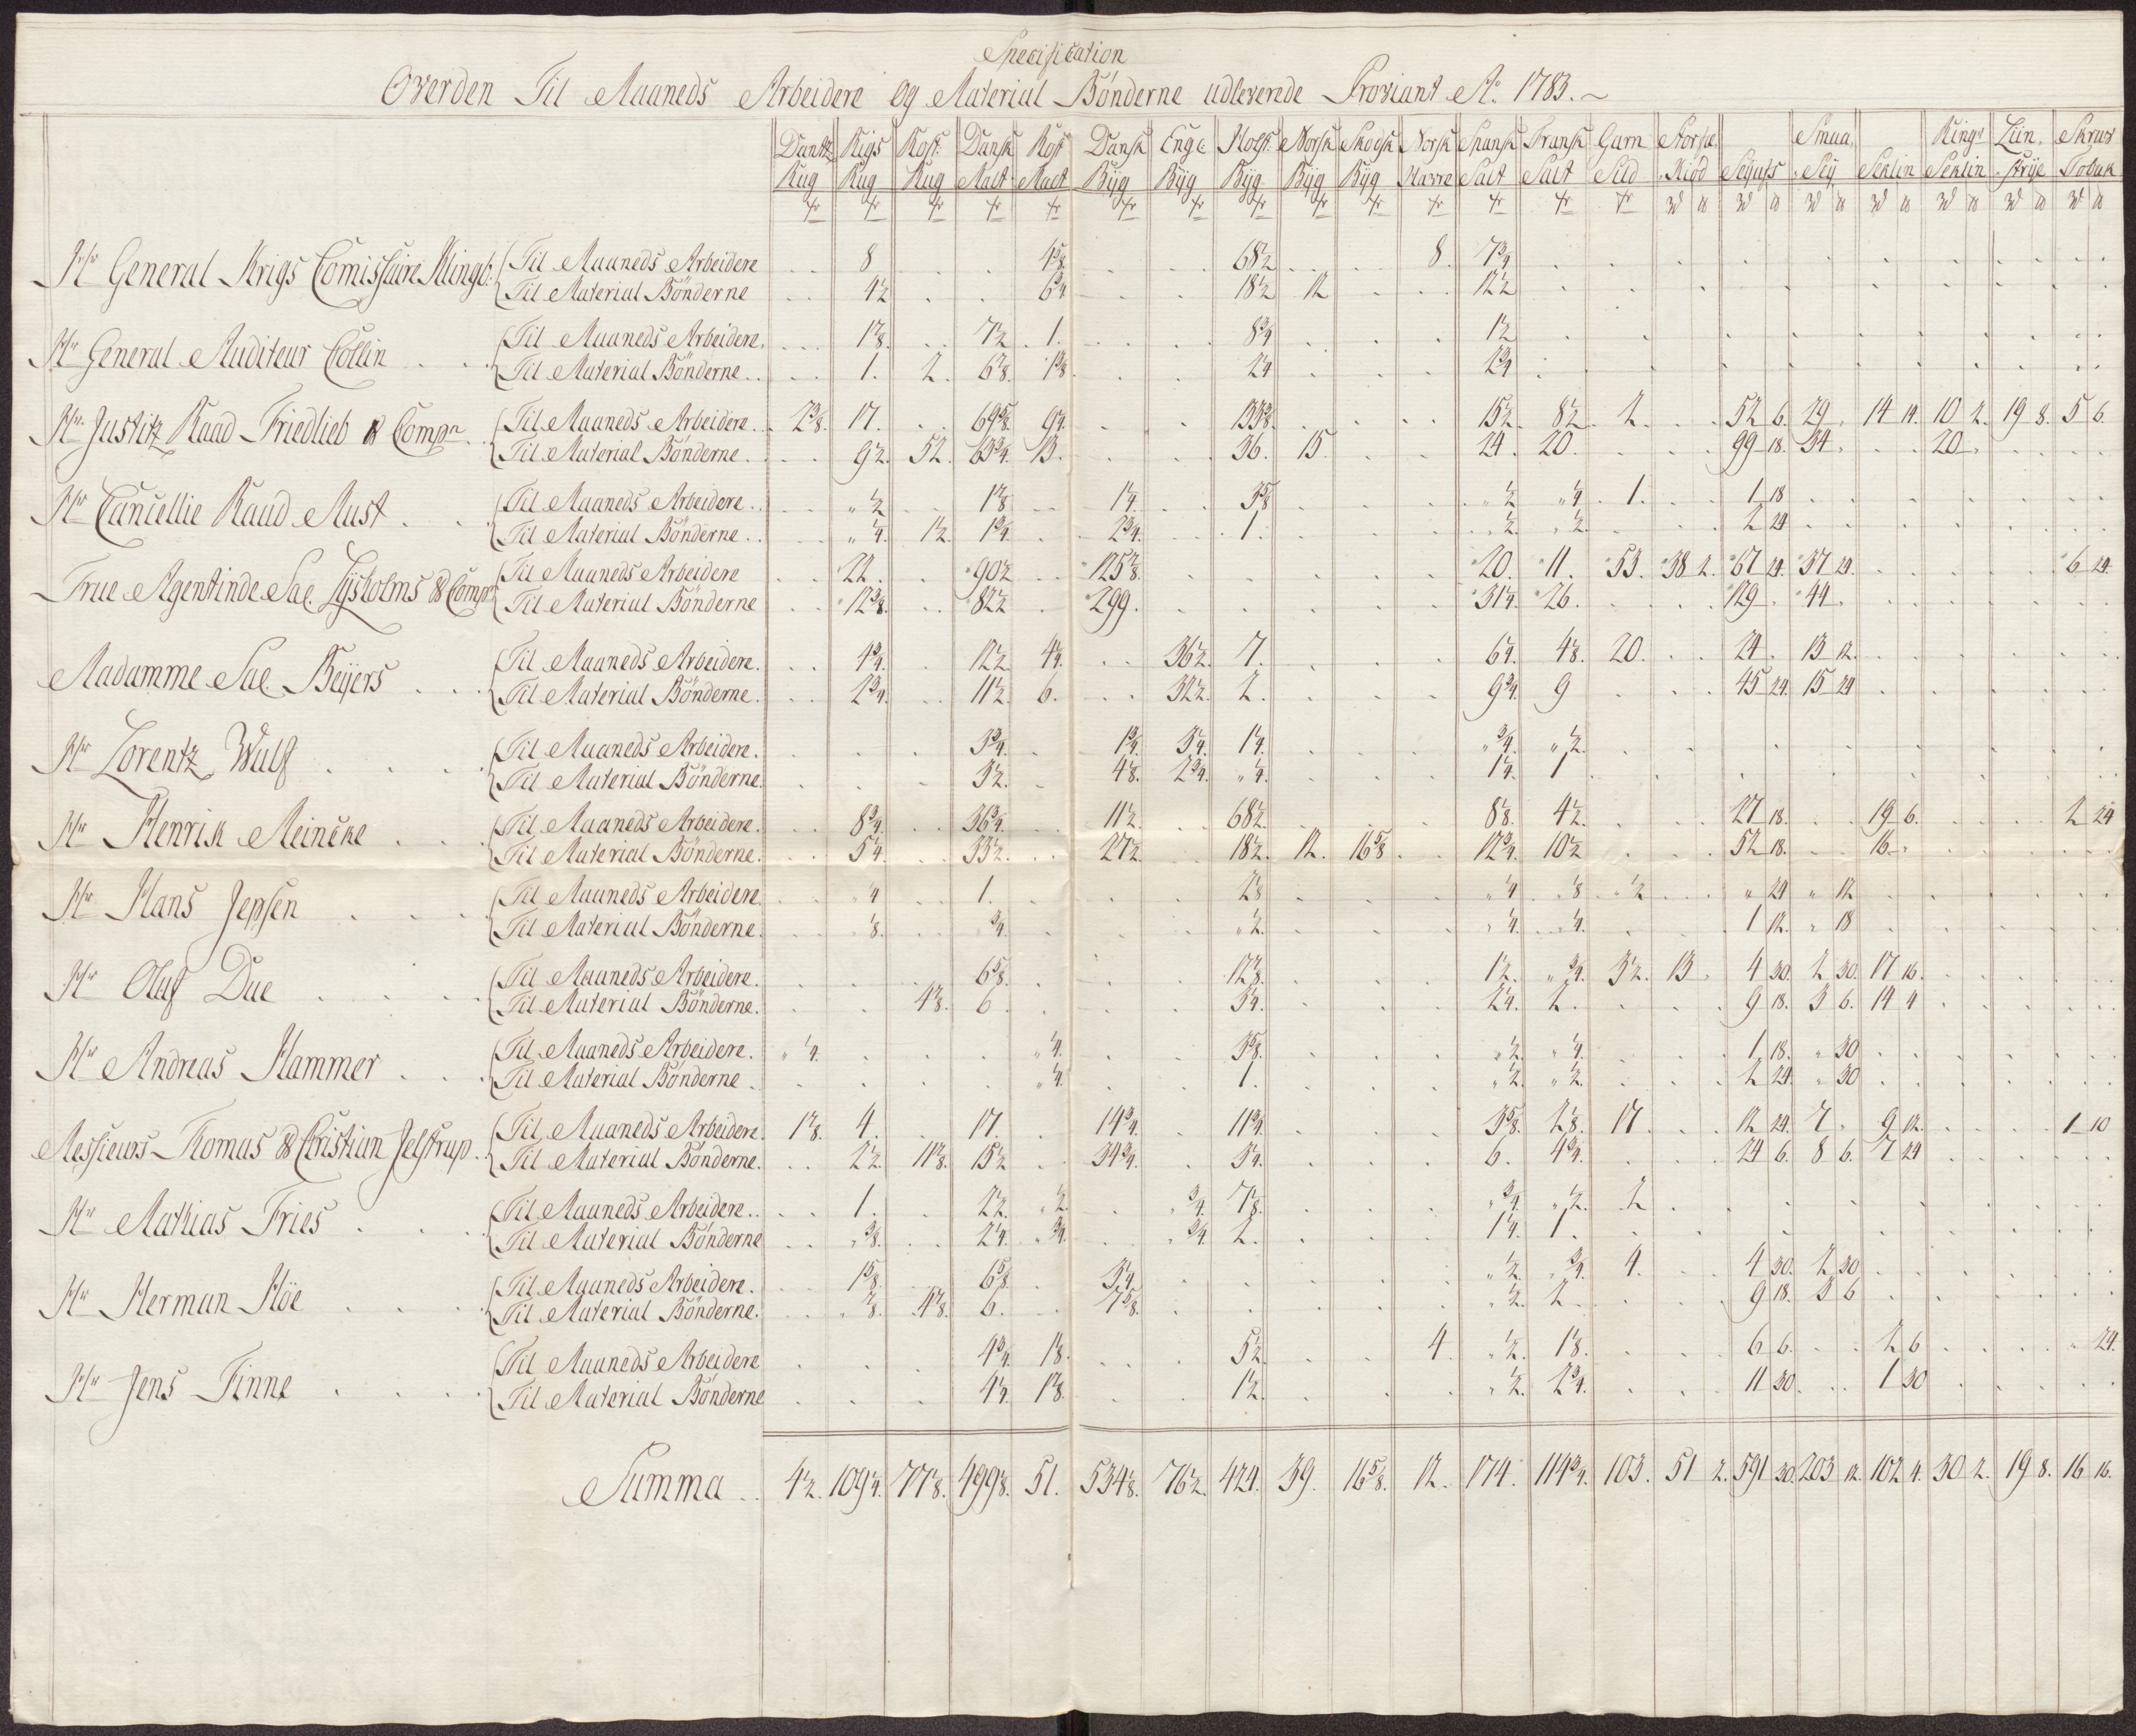 Specification
Overden Til Maaneds Arbeidere og Material Bönderne udleverede Proviant Aõ. 1783.
Dantz Rigs Kost. Dansk Kost Dansk Engl Holst. Norsk Skotsk Norsk Spansk Fransk Garn Norske Smaa Ring Liin Skraae
Rug Rug Rug Malt Malt Byg Byg Byg Byg Byg Havre Salt Salt Sild Kiød Seyufs Sey Seklin Seklin Strÿe Tobak
Hr General Krigs Comissaire Klingb: Til Maaneds Arbeidere 8 68½ 8. 7¾
Til Material Bönderne 4½ 6¾ 18½ 12 12½
Hr General Auditeur Collin Til Maaneds Arbeidere. 7½ 1. 8¾ 1½
Til Material Bönderne 1. 2. 2¼ 2¾
Hr. Justitz Raad Friedlieb & Compn. Til Maaneds Arbeidere 2⅜. 17. 69⅝. 9¼. 133⅜. 15½. 8½. 2. 52 6. 29. 14 14. 10 2. 19 8. 5 6.
Til Material Bönderne 9½. 52. 63¾. 13. 36. 15. 24. 20. 99 18. 34. 20.
Hr Cancellie Raad Aust Til Maaneds Arbeidere " ½ 1⅞ 1¼. 3⅝ " ½ " ¼. 1. 1 18
Til Material Bönderne " ¼. 1½. 1¾. 2¾. 1. " ½. " ½. 2 24
Frue Agentinde Sal. Lysholms & Compn Til Maaneds Arbeidere 22. 90½ 125⅞. 20. 11. 53. 38 2. 67 24. 37 24. 6 24.
Til Material Bönderne 12⅜. 82½ 299. 31¼. 26. 129. 44.
Madamme Sal. Beÿers Til Maaneds Arbeidere. 4¾. 12½ 4¼. 36½. 7. 6¼. 4⅛. 20. 24. 13 12.
Til Material Bönderne. 2¾. 11½. 6. 32½. 2. 9¾. 9 45 24. 15 24
Hr Lorentz Wulf Til Maaneds Arbeidere. 3¾. 1¾. 3¼. 1¼. " ¾. " ½.
Til Material Bönderne. 3½. 4⅛. 2¾. " ¼. 1¼. 1
Hr Henrik Meincke Til Maaneds Arbeidere. 8¾. 36¾. 11½. 68½. 8⅛. 4½. 27 18. 19 6. 2 24
Til Material Bönderne. 5¼. 33½. 27½. 18½. 12. 16⅝ 12¾. 10½ 52 18. 16.
Hr Hans Jepsen Til Maaneds Arbeidere. " ¼ 1. 2⅛ " ¼ " ⅛ " ½ " 24 " 12
Til Material Bönderne. " ⅛. " ¾. " ½. " ¼. " ¼. 1 12. " 18
Hr Oluf Due Til Maaneds Arbeidere. 6⅝. 12⅞. 1½. " ¾. 3½. 13. 4 30. 2 30. 17 16.
Til Material Bönderne. 4⅞. 6. 3¼. 2¼. 2. 9 18. 3 6. 14 4
Hr Andreas Hammer Til Maaneds Arbeidere. " ¼. " ¼. 3⅝. " ½. " ¼. 1 18. " 30
Til Material Bönderne " ¼. 1. " ½. " ½. 2 24. " 30
Messieurs Thomas & Christian Jelstrup Til Maaneds Arbeidere. 1⅞. 4. 17. 14¾. 11¾. 3⅝. 2⅛. 17. 12 24. 7. 9 12. 1 10
Til Material Bönderne. 2½. 11⅞. 15½ 34¾. 3¼. 6. 4¾. 24 6. 8 6. 7 24
Hr Mathias Fries Til Maaneds Arbeidere 1. 2½. " ½. " ¾. 7⅛. " ¾. " ½. 2
Til Material Bönderne " ⅜. 2¼. " ¾. " ¾. 2. 1¼. 1.
Hr Herman Höe Til Maaneds Arbeidere. 1⅝. 6⅝. 5¼. " ½. " ¾. 4. 4 30. 2 30
Til Material Bönderne. " ⅞. 4⅞. 6. " ½. 2 9 18. 3 6
Hr Jens Finne Til Maaneds Arbeidere 4¾. 1⅛. 5½. 4. " ½. 1⅛. 6 6. 2 6 " 24.
Til Material Bönderne 4¼. 1⅞ 1½. " ½. 2¾. 11 30. 1 30
Summa 4½. 109¼. 77⅛. 499⅛. 51. 534⅛. 76½. 424. 39. 16⅝. 12. 174. 114¾. 103. 51 2. 591 30. 203 12. 102 4. 30 2. 19 8. 16 16.